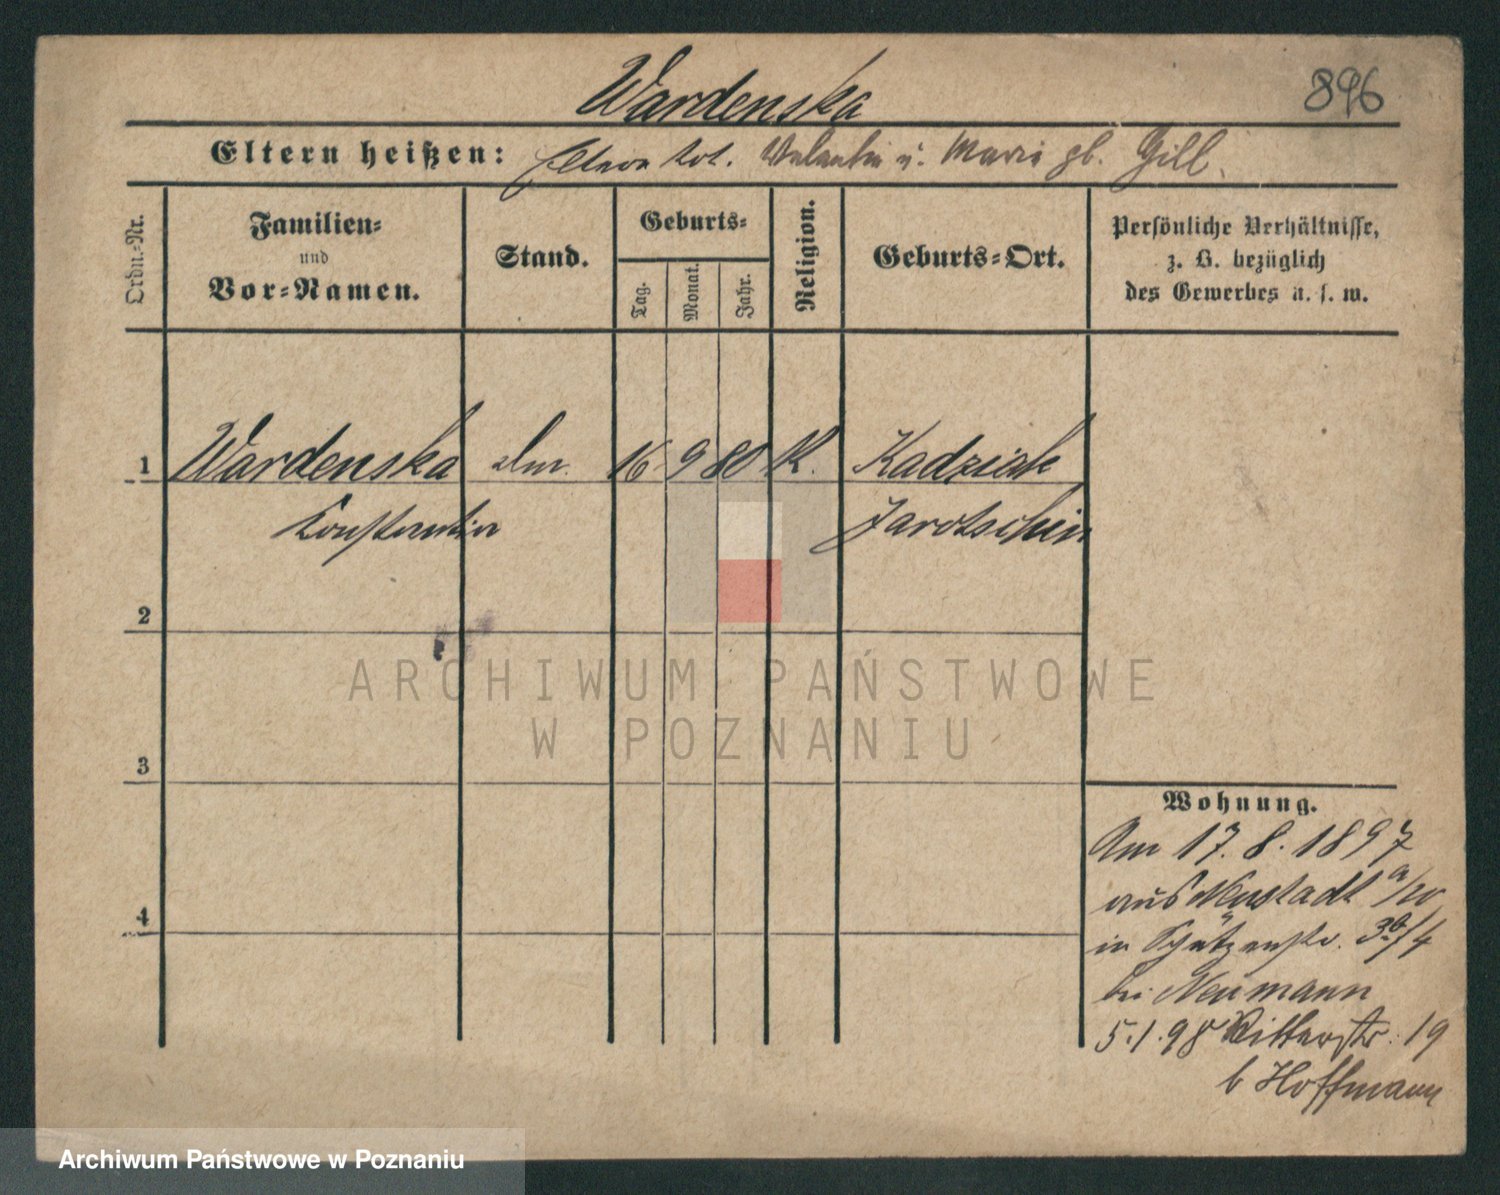 Wardenska
896
Eltern heißen: Eltern tot. Valentin u. Marie gb. Gill.
Ordn.-Nr.
Familien-
und
Vor-Namen.
Stand.
Geburts-
Tag.
Monat.
Jahr.
Religion.
Geburts-Ort.
Persönliche Verhältnisse,
z. B. bezüglich
des Gewerbes u. s. w.
1 Wardenska 16 9 80 K. Kadziak
Konstantia Jarotschin
2
3
4
Wohnung.
Am 17. 8. 1897
aus Neustadt a/W
in Schützenstr.
bei Neumann
5.1.98 Ritterstr. 19
b Hoffmann
ARCHIWUM PAŃSTWOWE
W POZNANIU
Archiwum Państwowe w Poznaniu